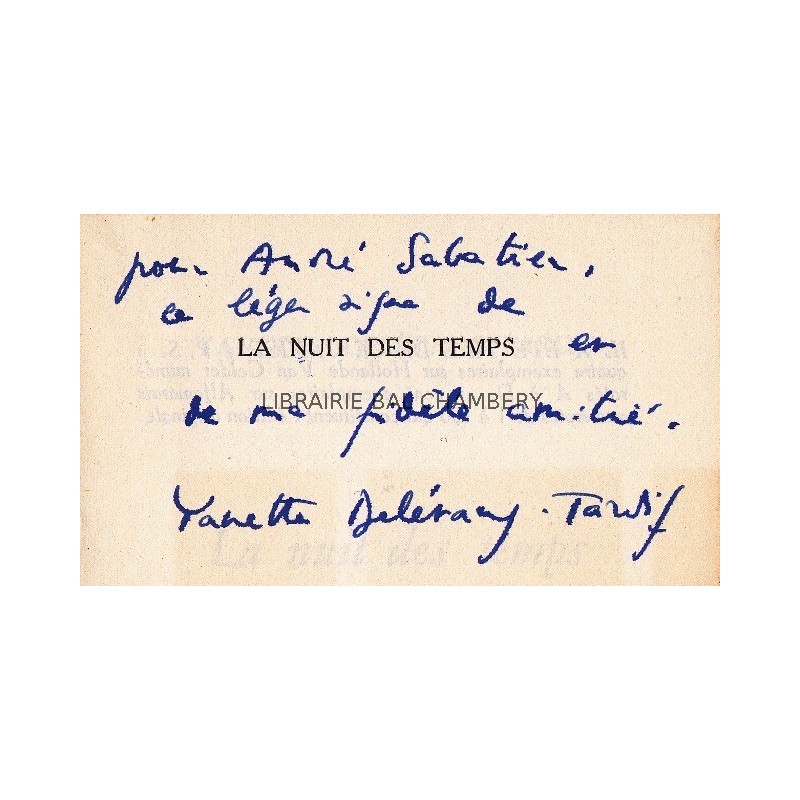 pour André Sabatier,
ce léger signe de
LA NUIT DES TEMPS et
LIBRAIRIE BAL CHAMBERY
de ma fidèle amitié.
Yanette Delétang-Tardif
La nuit des temps